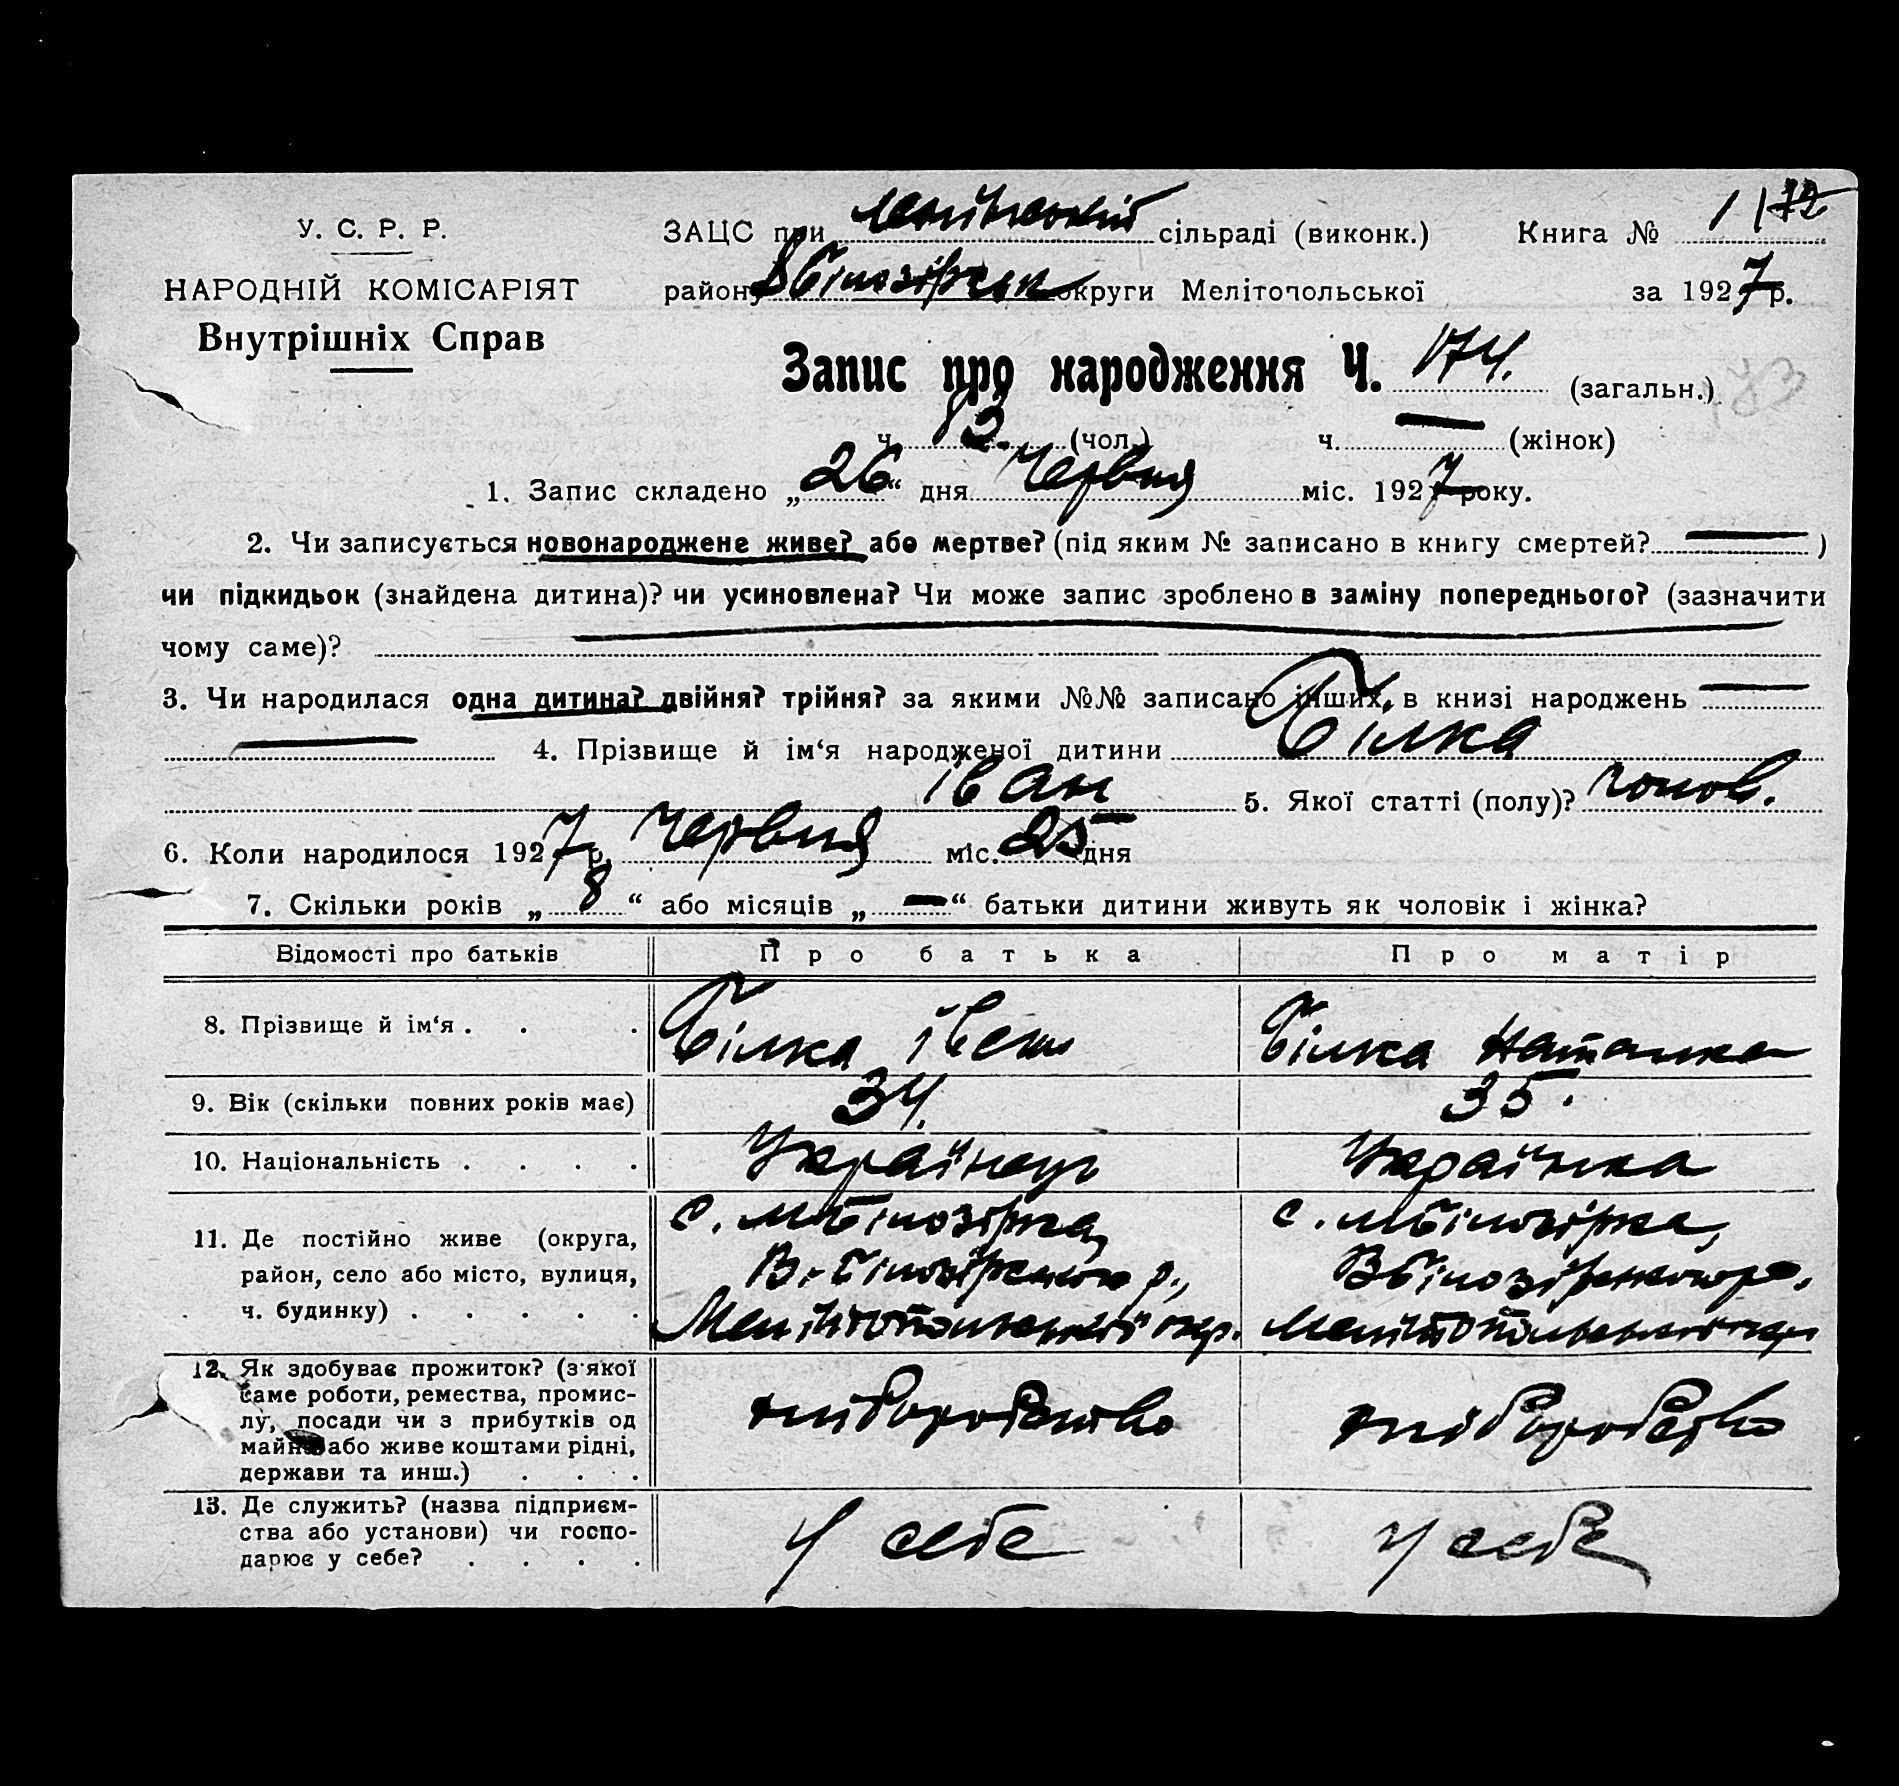 У. С. Р. Р.
НАРОДНІЙ КОМІСАРІЯТ
Внутрішніх Справ
ЗАЦС при сільраді (виконк.) Книга № 1
району ВБілозірськ округи Мелітопольської за 1927 р.
Запис про народження Ч. 174. (загальн.) 183
ч. 83 (чол.) ч. — (жінок)
1. Запис складено „26“ дня Червня міс. 1927 року.
2. Чи записується новонароджене живе? або мертве? (під яким № записано в книгу смертей? — )
чи підкидьок (знайдена дитина)? чи усиновлена? Чи може запис зроблено в заміну попереднього? (зазначити
чому саме)?
3. Чи народилася одна дитина? двійня? трійня? за якими №№ записано інших, в книзі народжень —
— 4. Прізвище й ім‘я народженої дитини Білка
Іван 5. Якої статті (полу)? чолов.
6. Коли народилося 1927 р. Червня міс. 25 дня
7. Скільки років „8“ або місяців „—“ батьки дитини живуть як чоловік і жінка?
Відомості про батьків Про батька Про матір
8. Прізвище й ім‘я . . . Білка Іван Білка Наталка
9. Вік (скільки повних років має) 34. 35.
10. Національність . . . . Українець Українка
11. Де постійно живе (округа,
район, село або місто, вулиця,
ч. будинку) . . . . .
с. МБілозірка,
В-Білозірського р.,
Мелітопольської окр.
с. МБілозірка,
ВБілозірського р.
Мелітопольської окр
12. Як здобуває прожиток? (з'якої
саме роботи, ремества, промис-
лу, посади чи з прибутків од
майна або живе коштами рідні,
держави та инш.) . . . .
хліборобство хліборобство
13. Де служить? (назва підприєм-
ства або установи) чи госпо-
дарює у себе? . . . .
У себе У себе